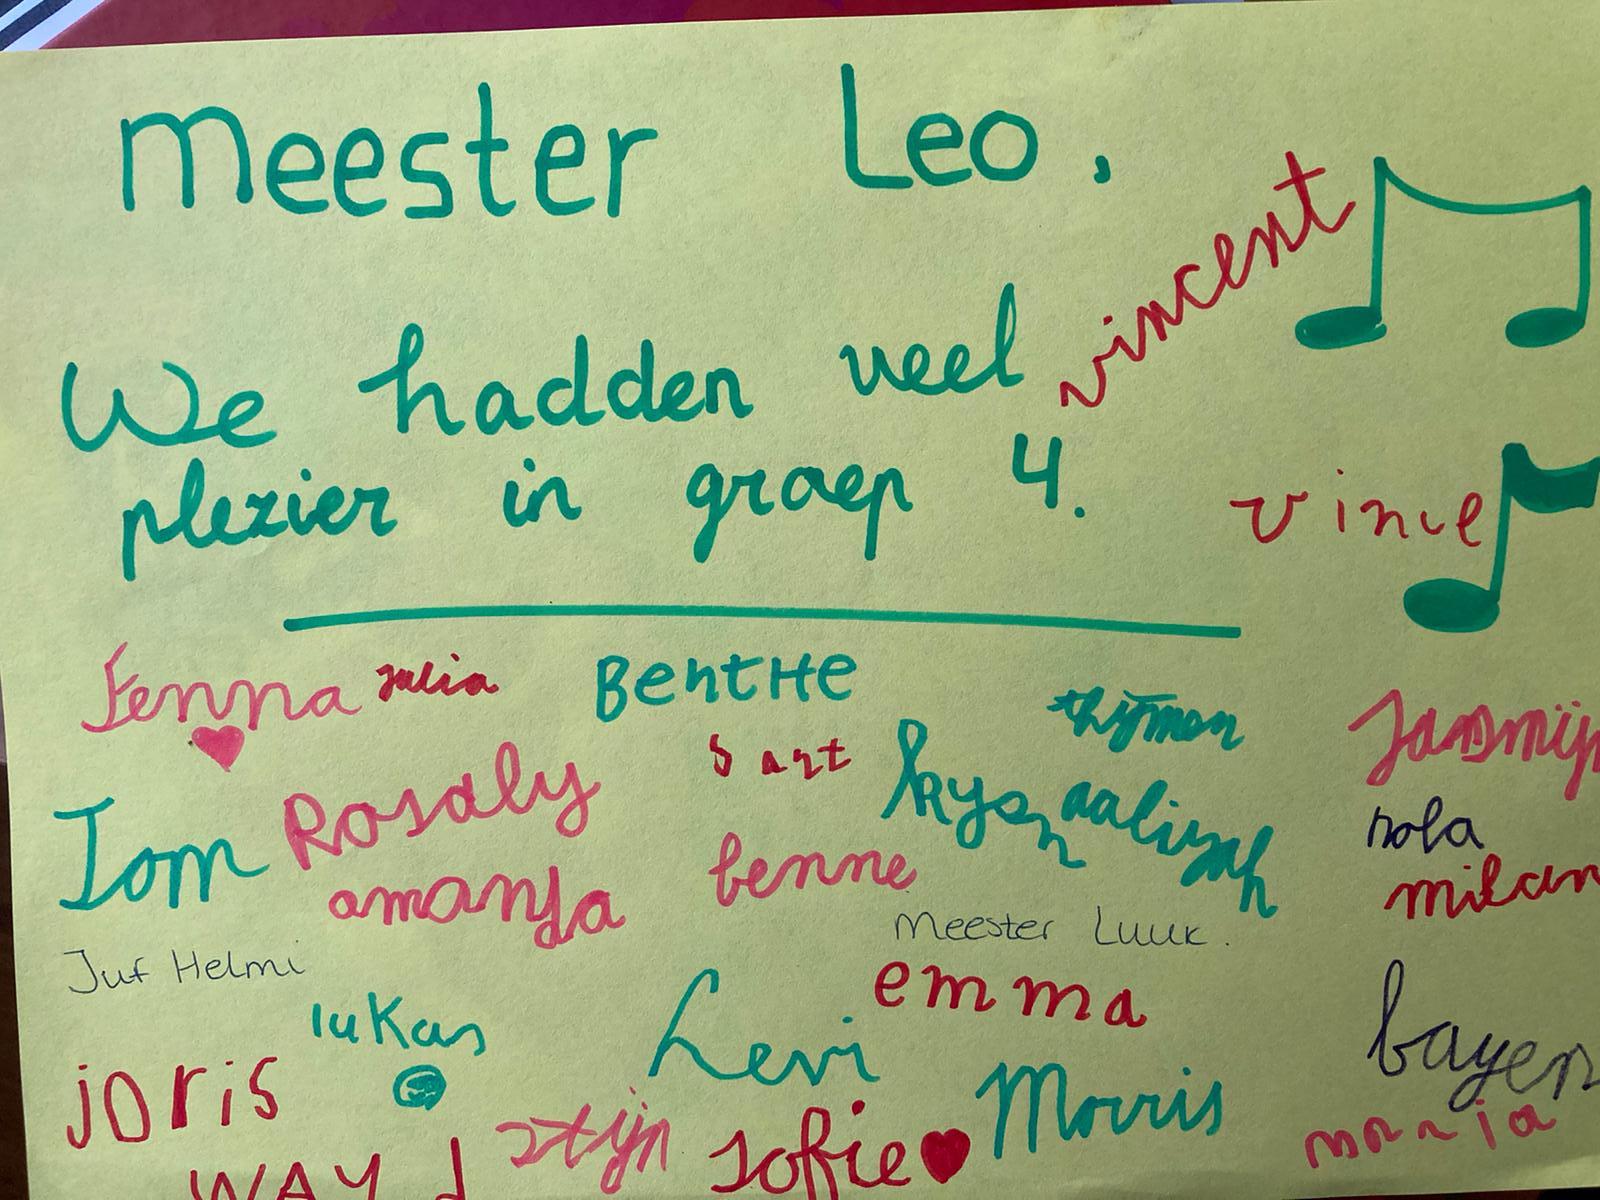 Meester Leo,
vincent
We hadden veel
plezier in groep 4.
vince
Fenna Julia Benthe
thijmen
Jasmijn
Rosaly
Tom
kysn aaliyah
nola
amanda benne
milan
Meester Luuk.
Juf Helmi
emma
lukas
Levi
bayen
joris
Morris
stijn sofie